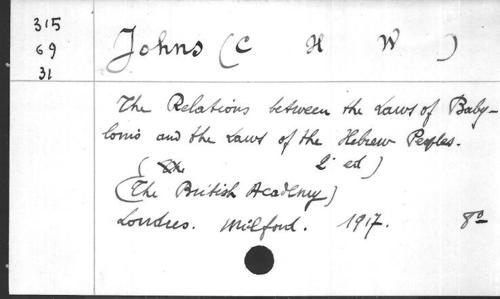 315
69
31
Johns (C H W )
The Relations between the Laws of Baby-
lonia and the Laws of the Hebrew Peoples.
( 2ᵉ ed )
(The British Academy)
Londres. Milford. 1917. 8º